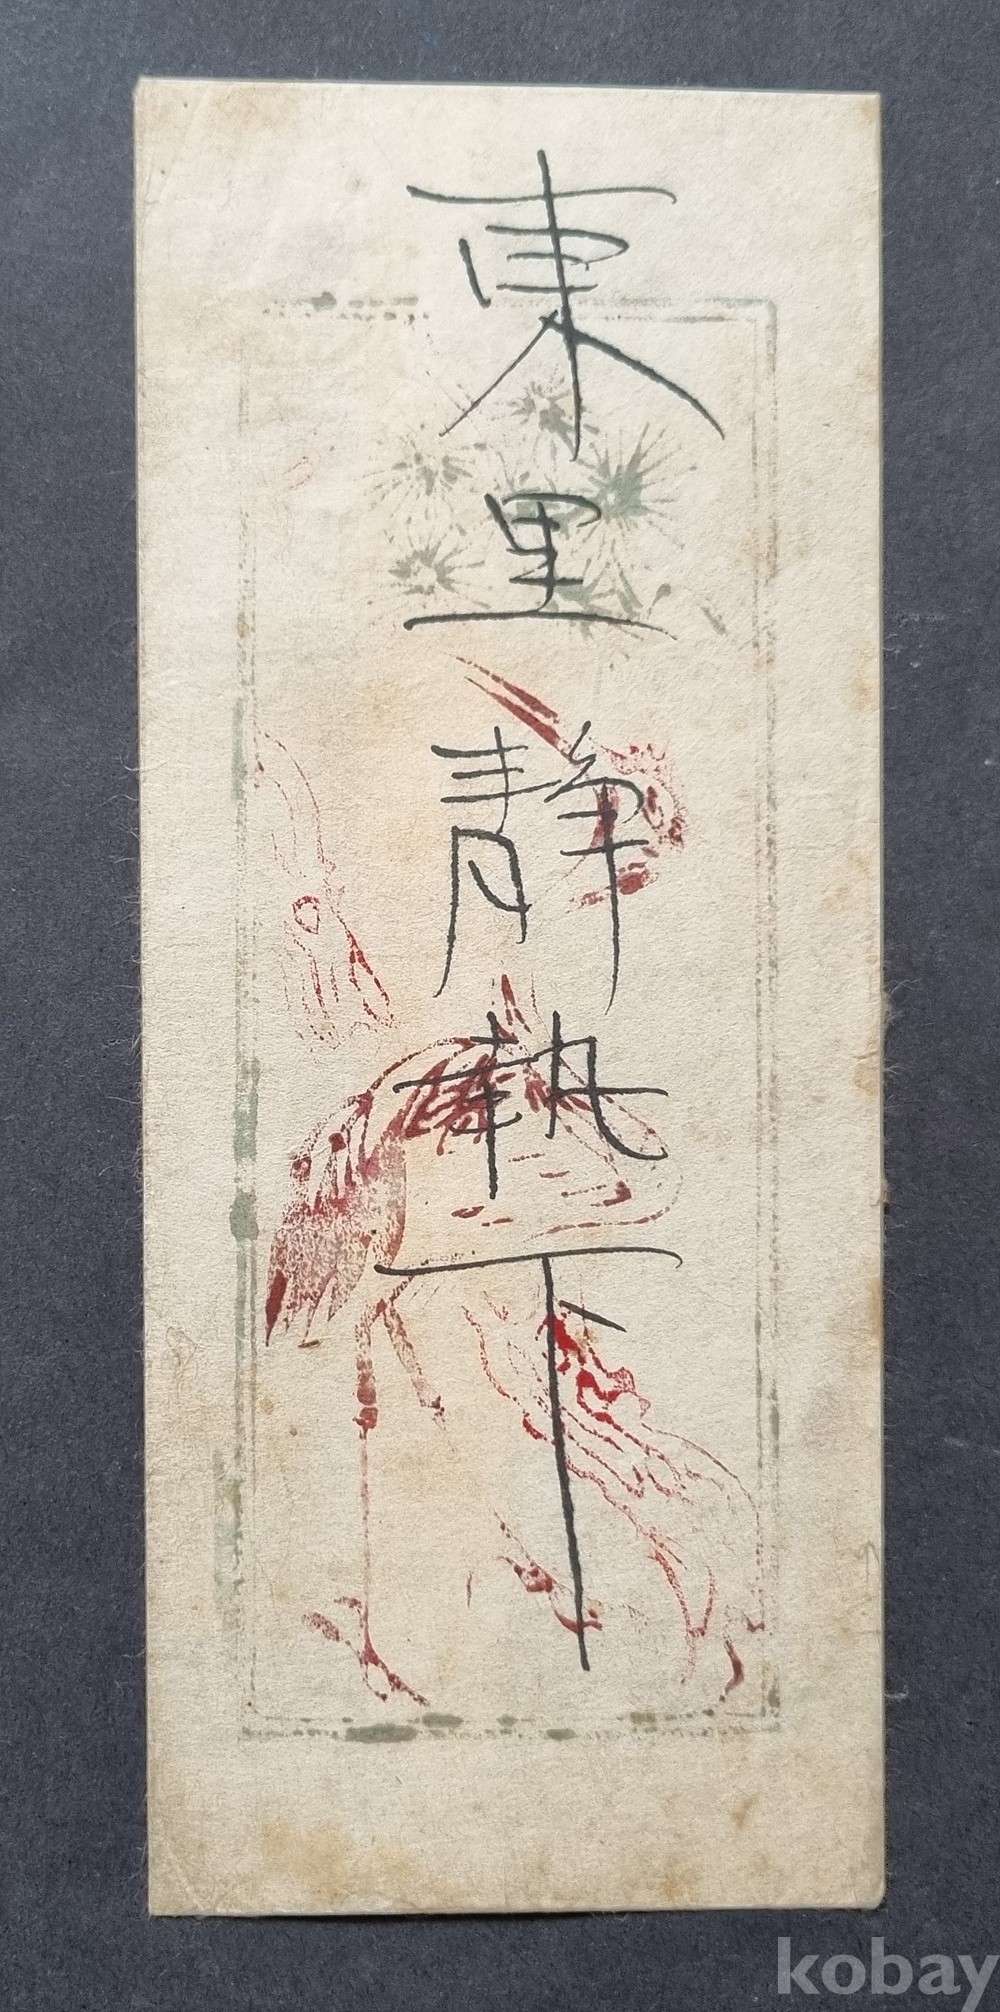 東里靜執下
kobay